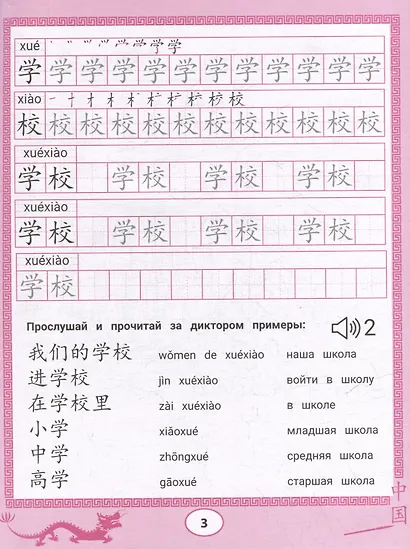 xué
学 学 学 学 学 学 学 学 学 学 学 学 学
xiào
校 校 校 校 校 校 校 校 校 校 校 校 校
xuéxiào
学校 学校 学校 学校
xuéxiào
学校 学校 学校 学校
xuéxiào
学校
Прослушай и прочитай за диктором примеры: 2
我们的学校 wǒmen de xuéxiào наша школа
进学校 jìn xuéxiào войти в школу
在学校里 zài xuéxiào в школе
小学 xiǎoxué младшая школа
中学 zhōngxué средняя школа
高学 gāoxué старшая школа
中国
3